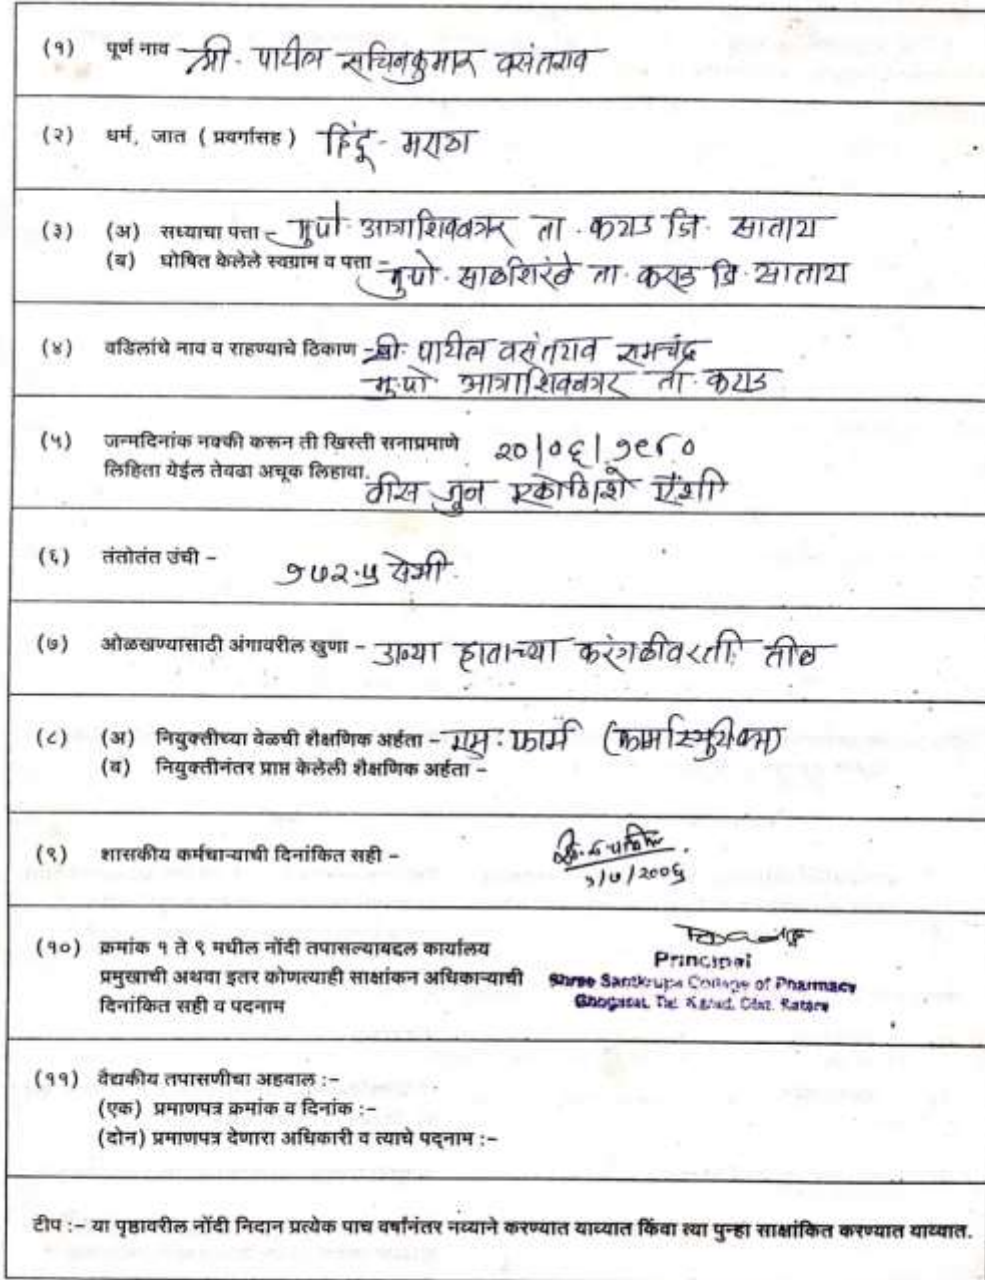 (१) पूर्ण नाव - श्री. पाटील सचिनकुमार वसंतराव
(२) धर्म, जात ( प्रवर्गासह ) हिंदू - मराठा
(३) (अ) सध्याचा पत्ता - मु.पो. ता. कराड जि. सातारा
(ब) घोषित केलेले स्वग्राम व पत्ता - मु.पो. साळशिरंबे ता. कराड जि. सातारा
(४) वडिलांचे नाव व राहण्याचे ठिकाण - श्री. पाटील वसंतराव रामचंद्र
मु.पो. ता. कराड
(५) जन्मदिनांक नक्की करून ती ख्रिस्ती सनाप्रमाणे २०/०६/१९८०
लिहिता येईल तेवढा अचूक लिहावा. वीस जून एकोणिशे ऐंशी
(६) तंतोतंत उंची - १७२.५ सेमी.
(७) ओळखण्यासाठी अंगावरील खुणा - उजव्या हाताच्या करंगळीवरती तीळ
(८) (अ) नियुक्तीच्या वेळची शैक्षणिक अर्हता - एम. फार्म (फार्मास्युटीक्स)
(ब) नियुक्तीनंतर प्राप्त केलेली शैक्षणिक अर्हता -
(९) शासकीय कर्मचाऱ्याची दिनांकित सही -
१/७/२००६
(१०) क्रमांक १ ते ९ मधील नोंदी तपासल्याबद्दल कार्यालय
Principal
प्रमुखाची अथवा इतर कोणत्याही साक्षांकन अधिकाऱ्याची Shree Santkrupa College of Pharmacy
दिनांकित सही व पदनाम Ghogaon, Tal. Karad, Dist. Satara
(११) वैद्यकीय तपासणीचा अहवाल :-
(एक) प्रमाणपत्र क्रमांक व दिनांक :-
(दोन) प्रमाणपत्र देणारा अधिकारी व त्याचे पद्नाम :-
टीप :- या पृष्ठावरील नोंदी निदान प्रत्येक पाच वर्षांनंतर नव्याने करण्यात याव्यात किंवा त्या पुन्हा साक्षांकित करण्यात याव्यात.